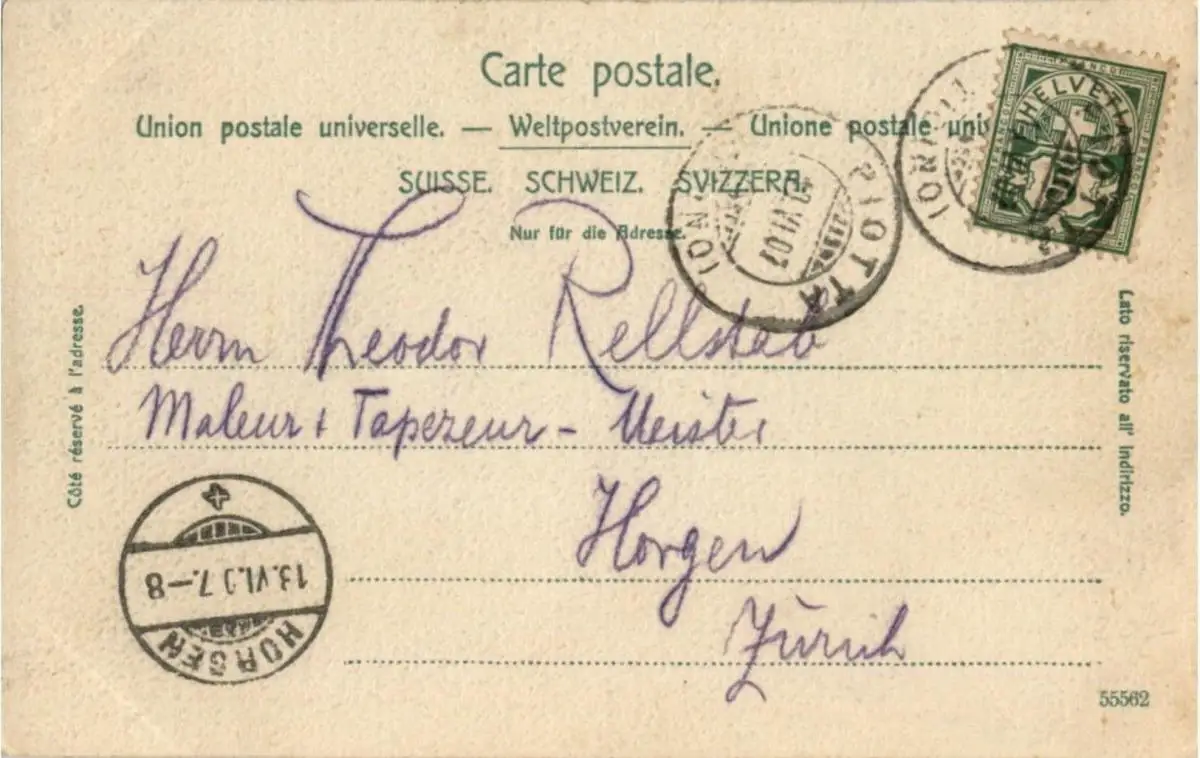 Carte postale.
Union postale universelle. — Weltpostverein. — Unione postale uni
SUISSE. SCHWEIZ. SVIZZERA.
Nur für die Adresse.
HELVETIA
FRANCO
PIOTTA
VI.07
Côté réservé à l'adresse.
Lato riservato all' indirizzo.
Herrn Theodor Rellstab
Maleur + Tapezeur - Meister
Horgen
Zürich
HORGEN
13.VI.07.—8
55562